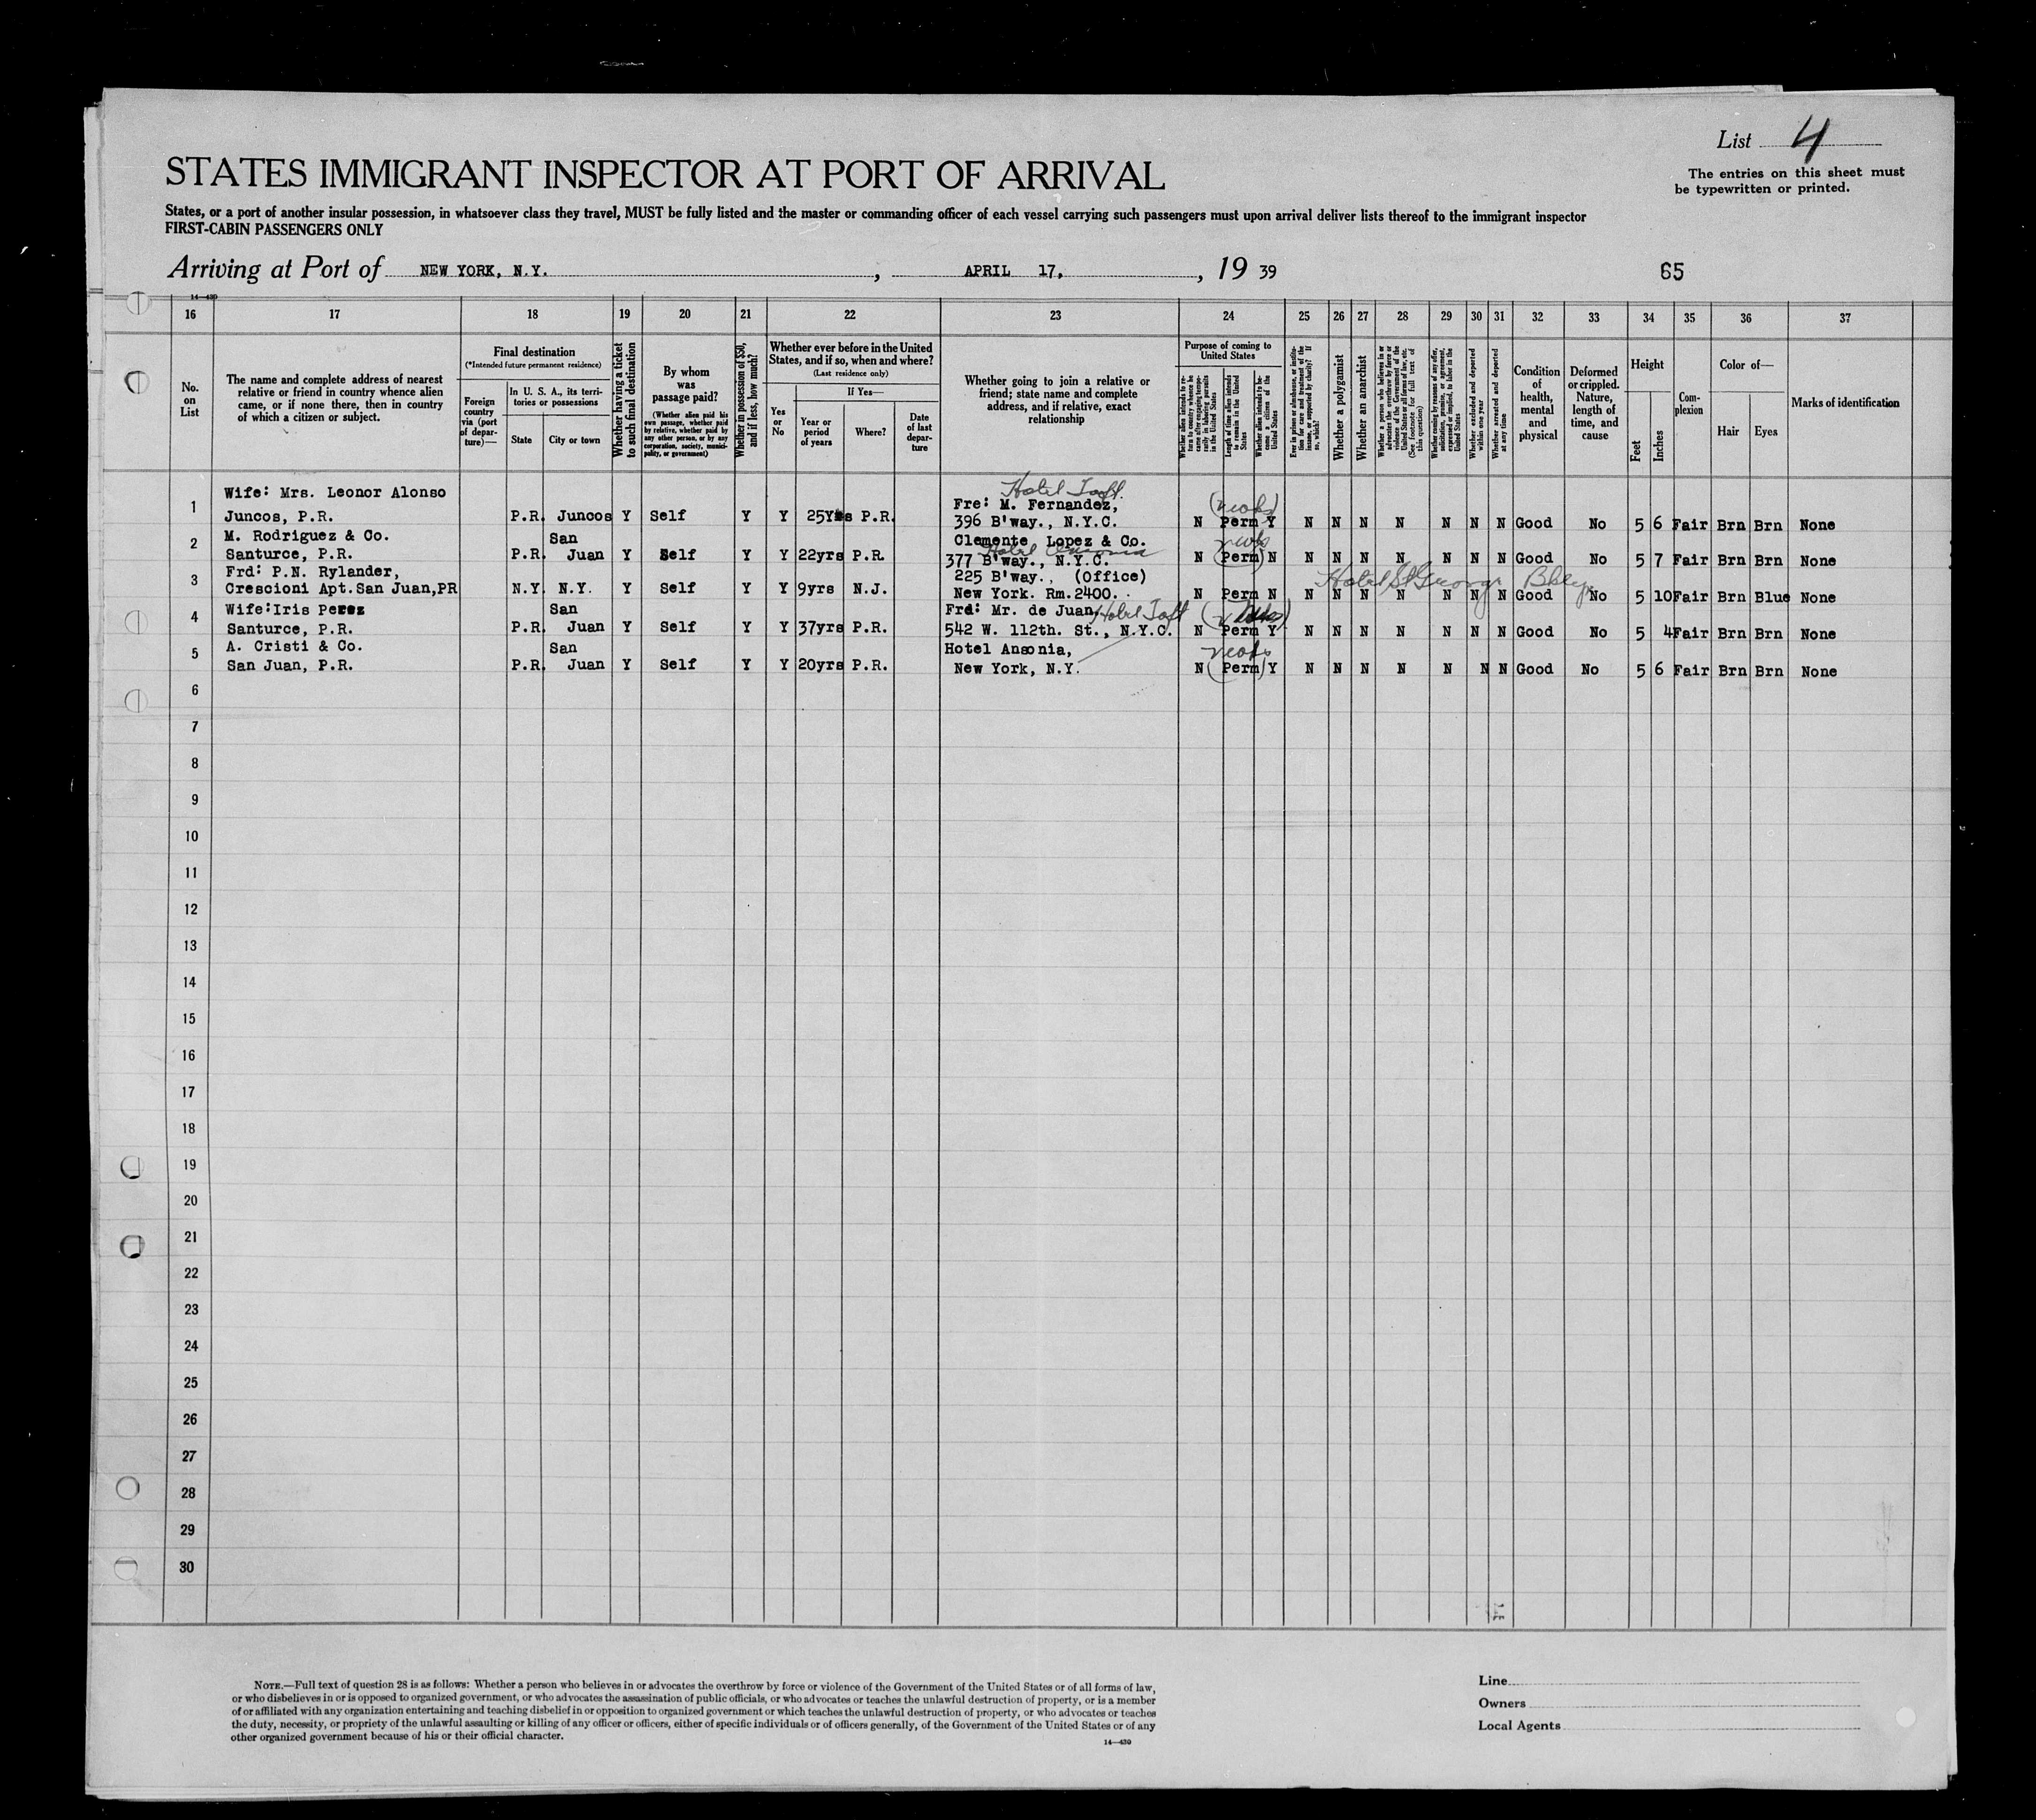 List 4
The entries on this sheet must
be typewritten or printed.
STATES IMMIGRANT INSPECTOR AT PORT OF ARRIVAL
States, or a port of another insular possession, in whatsoever class they travel, MUST be fully listed and the master or commanding officer of each vessel carrying such passengers must upon arrival deliver lists thereof to the immigrant inspector
FIRST-CABIN PASSENGERS ONLY
Arriving at Port of NEW YORK, N.Y., APRIL 17, 19 39
65
14—430
16 17 18 19 20 21 22 23 24 25 26 27 28 29 30 31 32 33 34 35 36 37
No. on List
The name and complete address of nearest
relative or friend in country whence alien
came, or if none there, then in country
of which a citizen or subject.
Final destination
(*Intended future permanent residence)
Foreign country via (port of departure)—
In U. S. A., its territories or possessions
State
City or town
Whether having a ticket to such final destination
By whom was passage paid?
(Whether alien paid his own passage, whether paid by relative, whether paid by any other person, or by any corporation, society, municipality, or government)
Whether in possession of $50, and if less, how much?
Whether ever before in the United
States, and if so, when and where?
(Last residence only)
Yes or No
If Yes—
Year or period of years
Where?
Date of last departure
Whether going to join a relative or
friend; state name and complete
address, and if relative, exact
relationship
Purpose of coming to United States
Whether alien intends to return to country whence he came after engaging temporarily in laboring pursuits in the United States
Length of time alien intends to remain in the United States
Whether alien intends to become a citizen of the United States
Ever in prison or almshouse, or institution for care and treatment of the insane, or supported by charity? If so, which?
Whether a polygamist
Whether an anarchist
Whether a person who believes in or advocates the overthrow by force or violence of the Government of the United States or all forms of law, etc. (See footnote for full text of this question)
Whether coming by reasons of any offer, solicitation, promise, or agreement, expressed or implied, to labor in the United States
Whether excluded and deported within one year
Whether arrested and deported at any time
Condition of health, mental and physical
Deformed or crippled. Nature, length of time, and cause
Height
Feet
Inches
Complexion
Color of—
Hair
Eyes
Marks of identification
Hotel Taft.
1 Wife: Mrs. Leonor Alonso
Juncos, P.R. P.R. Juncos Y Self Y Y 25Yrs P.R. Fre: M. Fernandez,
396 B'way., N.Y.C. N Perm Y N N N N N N N Good No 5 6 Fair Brn Brn None
2 M. Rodriguez & Co.
Santurce, P.R. P.R. San Juan Y Self Y Y 22yrs P.R. Clemente Lopez & Co.
Hotel Ansonia
377 B'way., N.Y.C. N Perm N N N N N N N N Good No 5 7 Fair Brn Brn None
3 Frd: P.N. Rylander,
Crescioni Apt.San Juan,PR N.Y. N.Y. Y Self Y Y 9yrs N.J. 225 B'way., (Office)
Hotel St George Bklyn
New York. Rm.2400. N Perm N N N N N N N N Good No 5 10 Fair Brn Blue None
4 Wife:Iris Perez
Santurce, P.R. P.R. San Juan Y Self Y Y 37yrs P.R. Frd: Mr. de Juan, Hotel Taft
542 W. 112th. St., N.Y.C. N Perm Y N N N N N N N Good No 5 4 Fair Brn Brn None
5 A. Cristi & Co.
San Juan, P.R. P.R. San Juan Y Self Y Y 20yrs P.R. Hotel Ansonia,
New York, N.Y. N Perm Y N N N N N N N Good No 5 6 Fair Brn Brn None
6
7
8
9
10
11
12
13
14
15
16
17
18
19
20
21
22
23
24
25
26
27
28
29
30
NOTE.—Full text of question 28 is as follows: Whether a person who believes in or advocates the overthrow by force or violence of the Government of the United States or of all forms of law,
or who disbelieves in or is opposed to organized government, or who advocates the assassination of public officials, or who advocates or teaches the unlawful destruction of property, or is a member
of or affiliated with any organization entertaining and teaching disbelief in or opposition to organized government or which teaches the unlawful destruction of property, or who advocates or teaches
the duty, necessity, or propriety of the unlawful assaulting or killing of any officer or officers, either of specific individuals or of officers generally, of the Government of the United States or of any
other organized government because of his or their official character.
14—430
Line
Owners
Local Agents